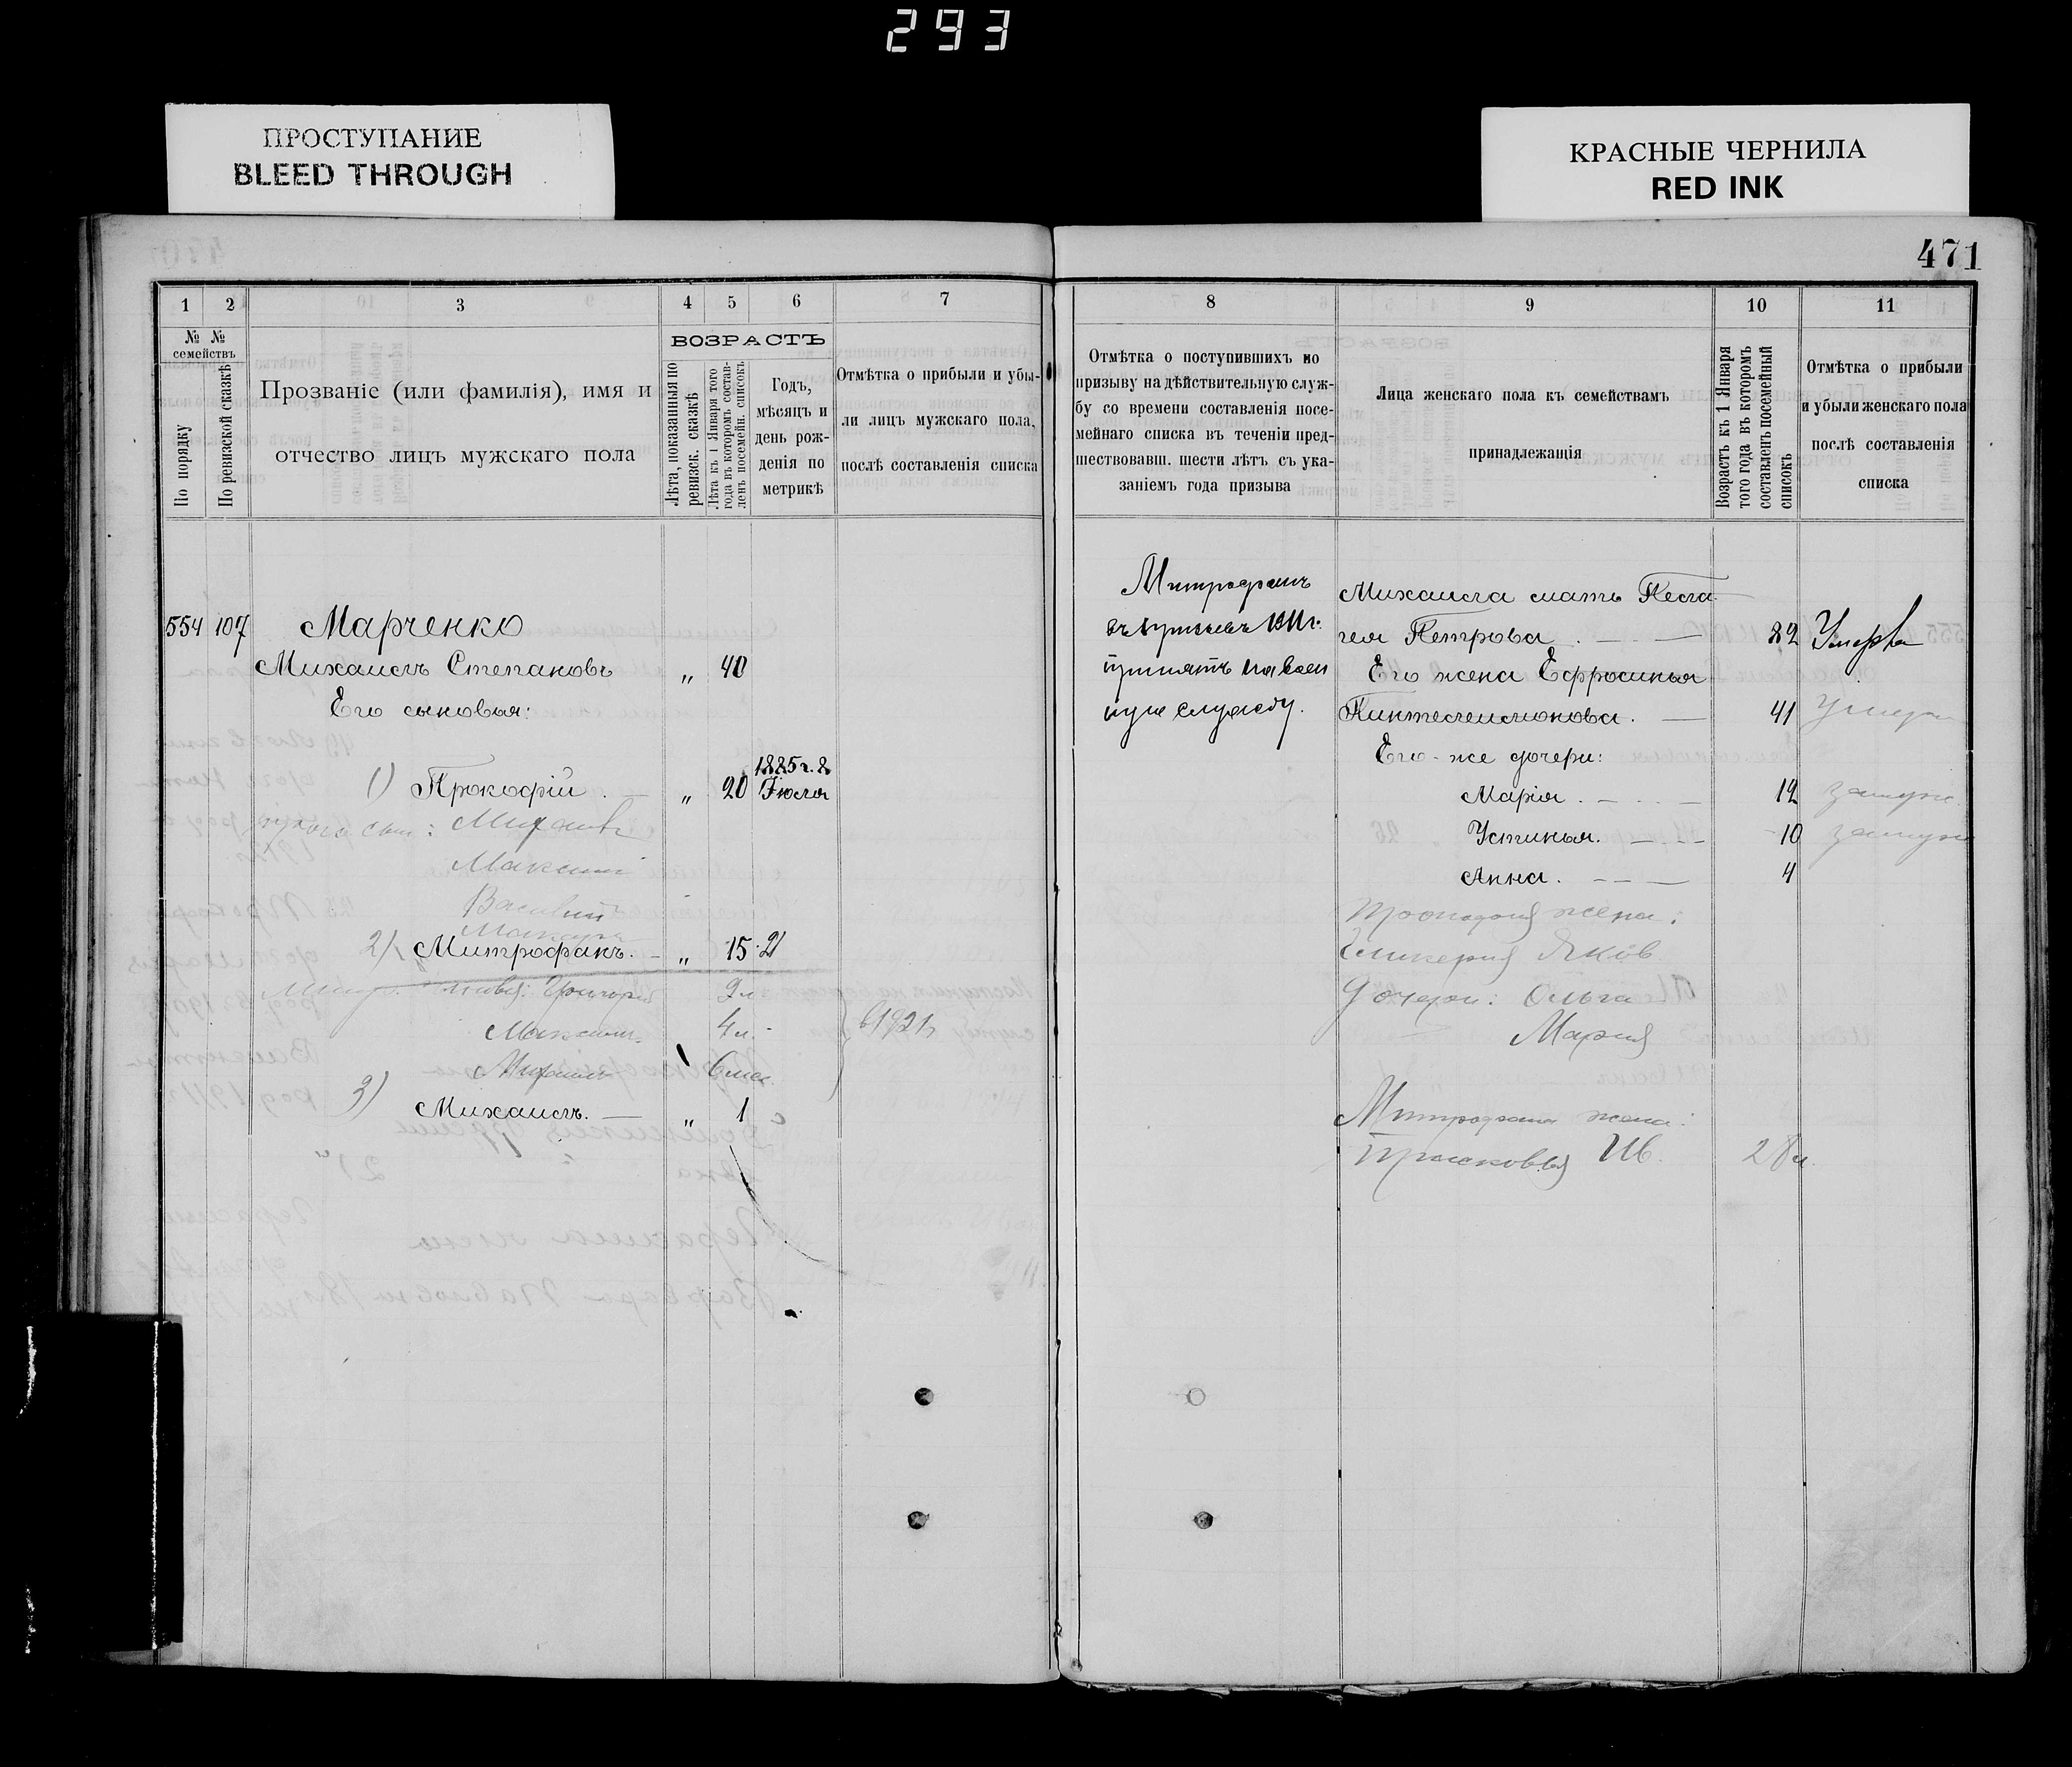 293
ПРОСТУПАНИЕ
BLEED THROUGH
КРАСНЫЕ ЧЕРНИЛА
RED INK
471
1 2 3 4 5 6 7
№ № семействъ
По порядку
По ревизской сказкѣ
Прозваніе (или фамилія), имя и
отчество лицъ мужскаго пола
ВОЗРАСТЪ
Лѣта, показанныя по
ревизск. сказкѣ
Лѣта къ 1 Января того
года въ которомъ состав-
ленъ посемейн. списокъ
Годъ,
мѣсяцъ и
день рож-
денія по
метрикѣ
Отмѣтка о прибыли и убы-
ли лицъ мужскаго пола,
послѣ составленія списка
554 107 Марченко
Михаилъ Степановъ „ 40
Его сыновья:
1) Прокофій „ 20 1885 г. 8 Іюля
сын:
Максим
Василий
2) Митрофанъ. „ 15 21
Григорій 9 л
4 л.
1921
Михаил 6 мес.
3) Михаилъ. „ 1
8 9 10 11
Отмѣтка о поступившихъ по
призыву на дѣйствительную служ-
бу со времени составленія посе-
мейнаго списка въ теченіи пред-
шествовавш. шести лѣтъ съ ука-
заніемъ года призыва
Лица женскаго пола къ семействамъ
принадлежащія
Возрастъ къ 1 Января
того года въ которомъ
составленъ посемейный
списокъ
Отмѣтка о прибыли
и убыли женскаго пола
послѣ составленія
списка
Митрофанъ
въ призывъ 1911 г.
принятъ на воен
ную службу.
Михаила мать Пела
гея Петрова 82 Умерла
Его жена Ефросинья
Пантелеимонова. 41 Умерла
Его-же дочери:
Марія. 12 замуж.
Устинья. 10 замуж
Анна. 4
жена:
Яков
Дочери: Ольга
Мария
Митрофана жена:
Прасковья Ив. 28 л.